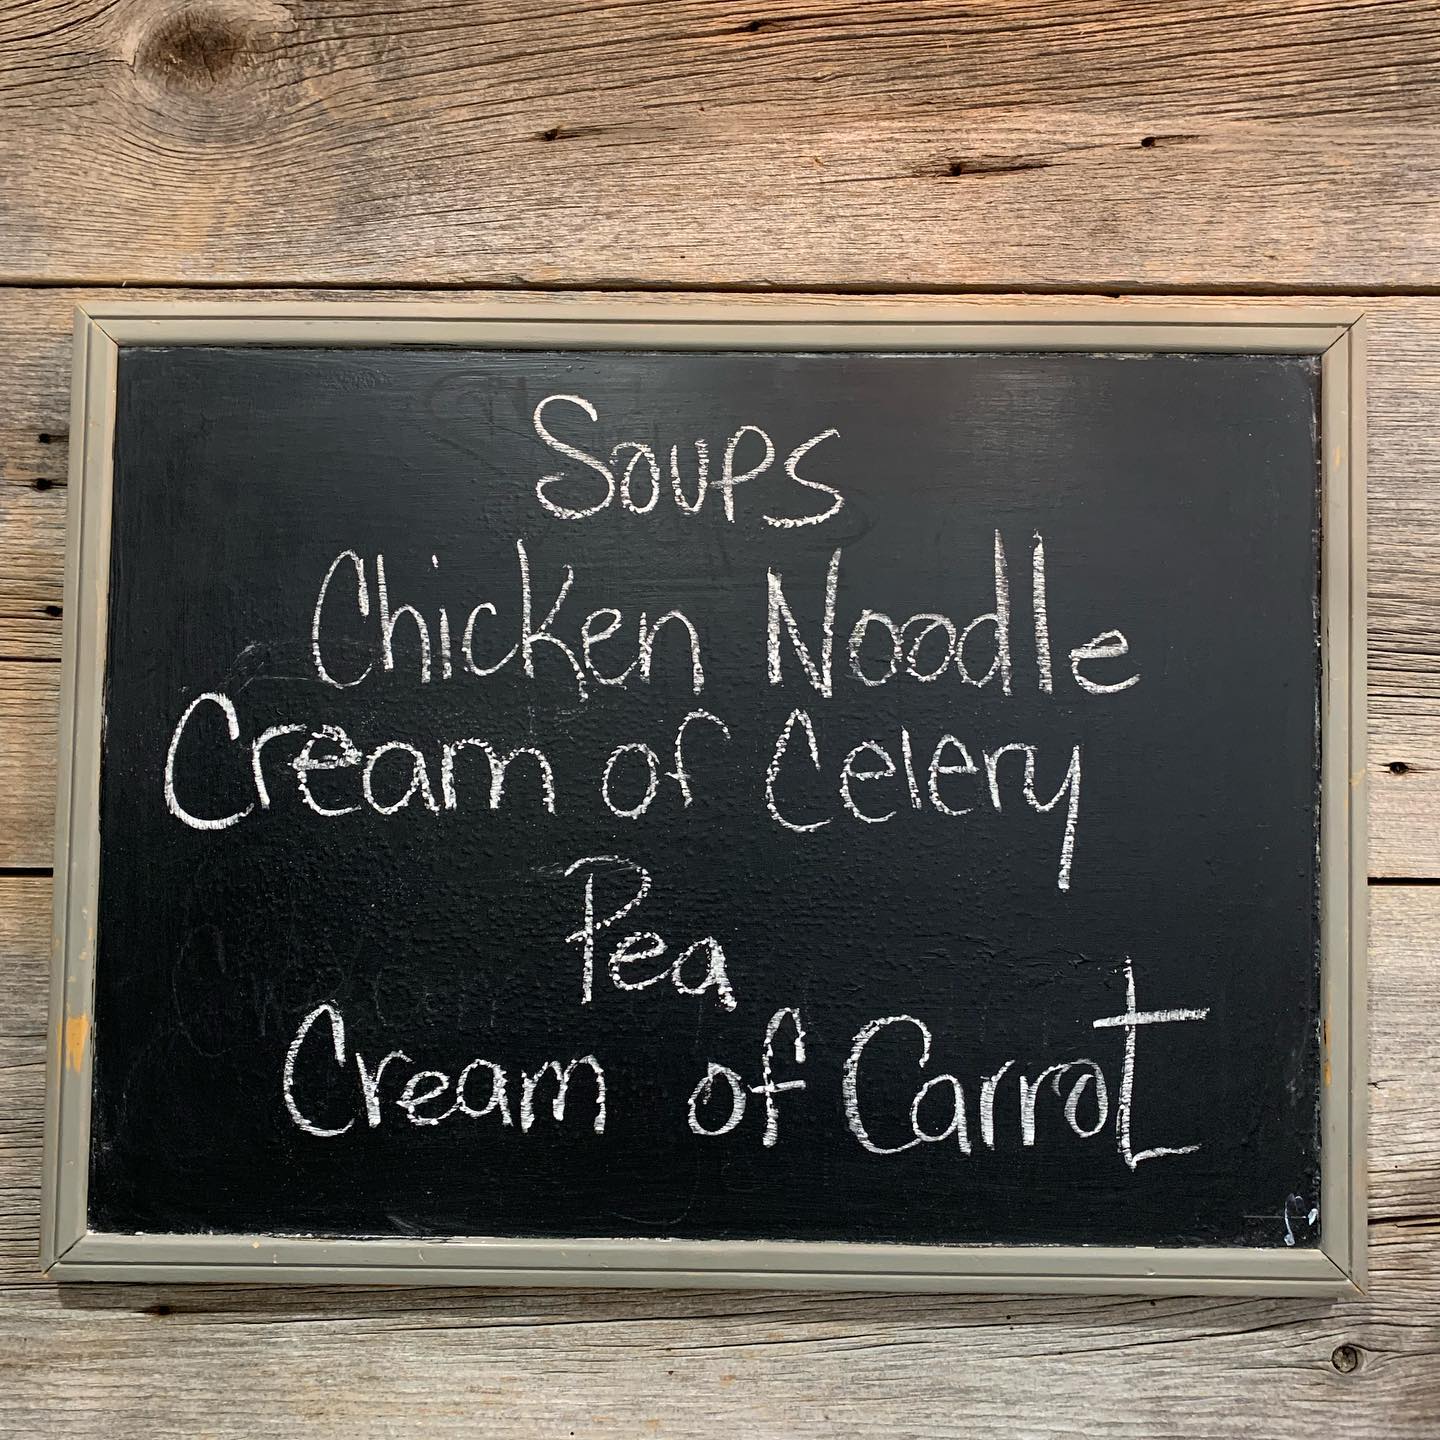 Soups
Chicken Noodle
Cream of Celery
Pea
Cream of Carrot